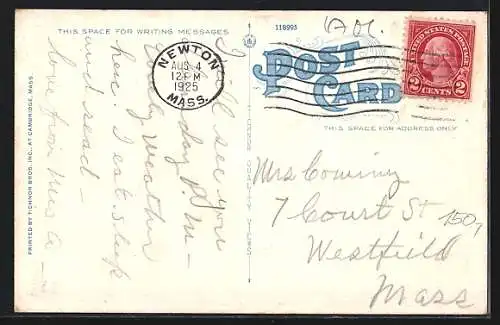 THIS SPACE FOR WRITING MESSAGES
118993
POST
CARD
THIS SPACE FOR ADDRESS ONLY
NEWTON
AUG 4
12 PM
1925
MASS.
UNITED STATES POSTAGE
2 CENTS 2
I shall see you
day P.M. —
weather
here. I eat sleep
and read —
love from Miss A —
Mrs
7 Court St
150,
Westfield
Mass
PRINTED BY TICHNOR BROS. INC., AT CAMBRIDGE, MASS.